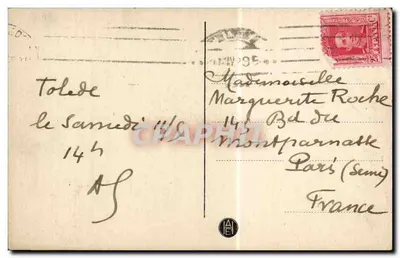 Tolede
le Samedi
14h
AS
Mademoiselle
Marguerite Roche
Bd du
Montparnasse
Paris (Seine)
France
CPAPHIL